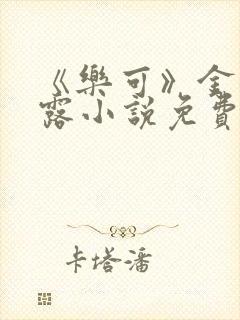 《樂可》金
露小說免費
卡塔潘